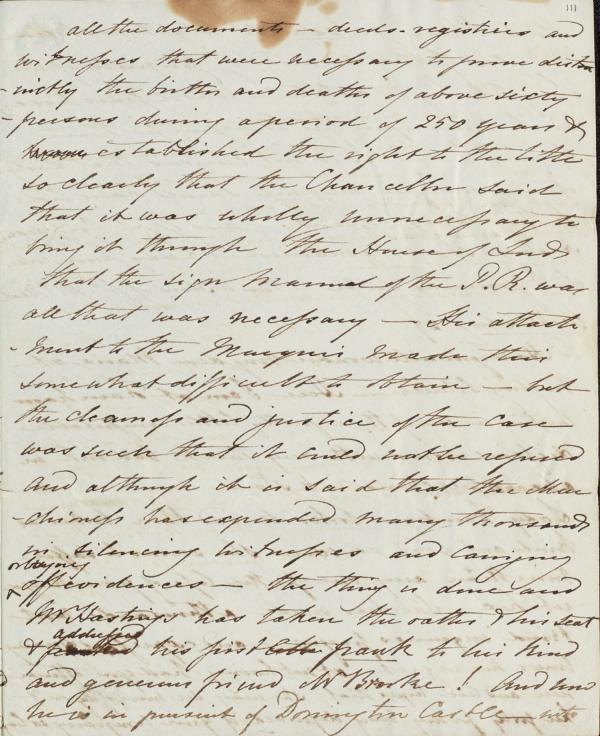 111
all the documents – deeds – registries and
witnesses that were necessary to prove distin
nctly the births and deaths of above sixty
- persons during a period of 250 years &
established the right to the title
so clearly that the Chancellor said
that it was wholly unnecessary to
bring it through the House of Lords
that the sign Manual of the P. R. was
all that was necessary – His attach
- ment to the Marquis made this
somewhat difficult to obtain – but
the clearness and justice of the case
was such that it could not be refused
and although it is said that the Mar
- chioness has expended many thousands
in silencing witnesses and carrying
or buying
off evidences – the thing is done and
Mr Hastings has taken the oaths & his seat
addressed
& his first frank to his kind
and generous friend Mr Brooke! And now
he is in pursuit of Donnington Castle – with